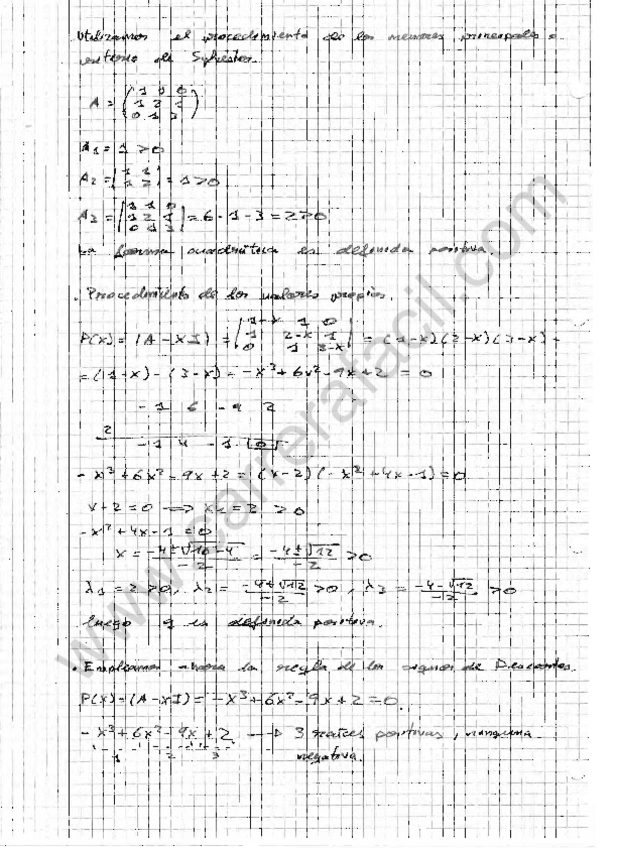 Utilizamos el procedimiento de los menores principales o
criterio de Sylvester.
A = (1 0 0
1 2 1
0 1 3)
A1 = 1 > 0
A2 = |1 1
1 2| = 1 > 0
A3 = |1 1 0
1 2 1
0 1 3| = 6 - 1 - 3 = 2 > 0
La forma cuadrática es definida positiva.
. Procedimiento de los valores propios.
P(x) = |A - XI| = |1-x 1 0
1 2-x 1
0 1 3-x| = (1-x)(2-x)(3-x) -
= (1-x) - (3-x) = -x³ + 6x² - 9x + 2 = 0
-1 6 -9 2
2
-1 4 -1 0
- x³ + 6x² - 9x + 2 = (x-2)(-x² + 4x - 1) = 0
x + 2 = 0 ⟹ x1 = 2 > 0
-x² + 4x - 1 = 0
x = -4±√16-4 / -2 = -4±√12 / -2 > 0
λ1 = 2 > 0, λ2 = -4+√12 / -2 > 0, λ3 = -4-√12 / -2 > 0
luego q es definida positiva.
. Empleamos ahora la regla de los signos de Descartes.
P(x) = (A - XI) = -x³ + 6x² - 9x + 2 = 0.
- x³ + 6x² - 9x + 2 → 3 raíces positivas, ninguna
1 2 3 negativa.
www.carrerafacil.com